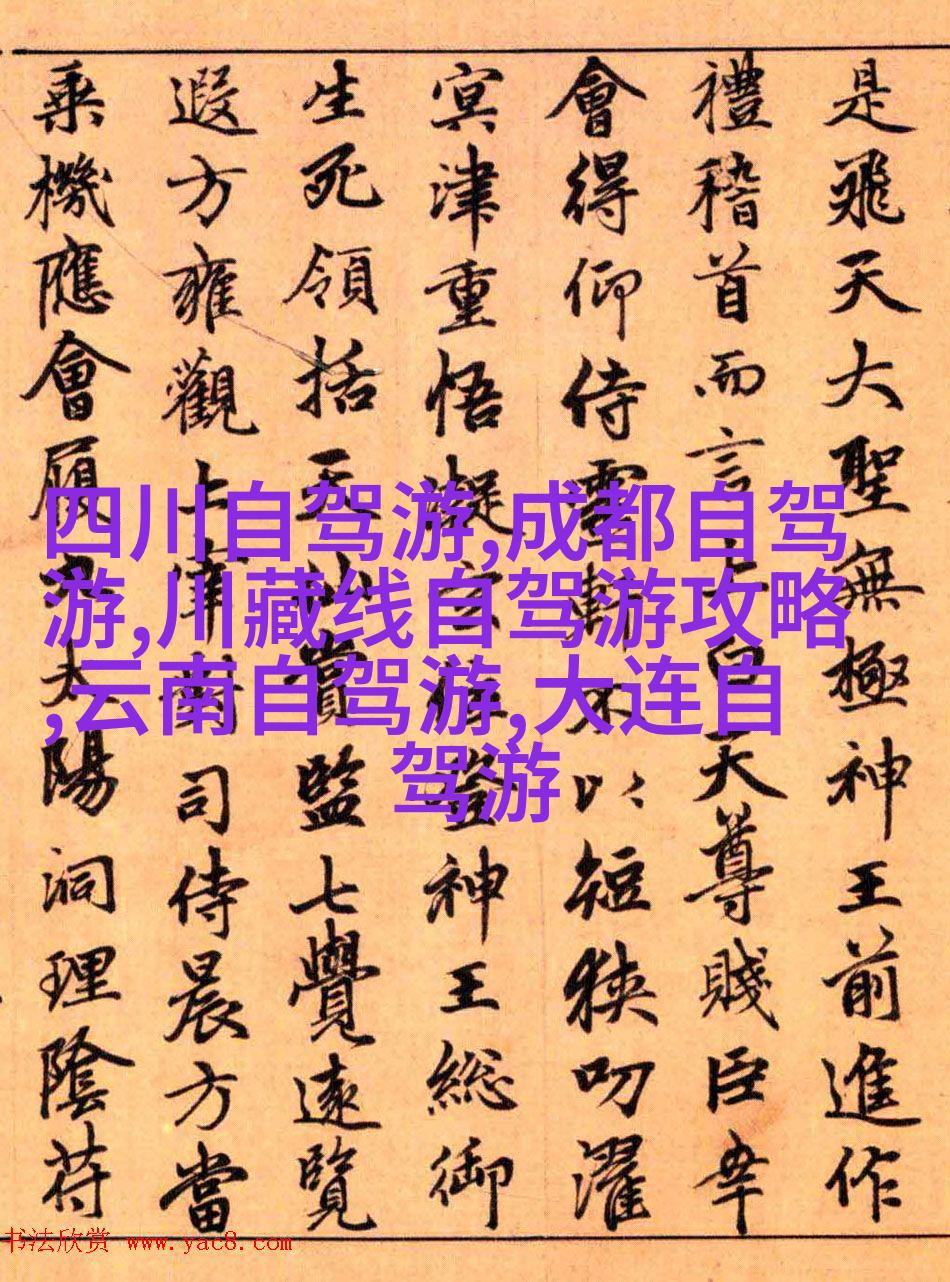 是飛天大聖無極神王前進作
禮稽首而言上白天尊賤臣幸
會得仰侍靈軒不以短狹叨濯
冥津重悟凝玄位登神王総御
生死領括天仙賞監七覺遠覽
遐方雍觀上宰南司侍晨方當
乗機應會履太陽洞理陰苻
四川自驾游,成都自驾
游,川藏线自驾游攻略
,云南自驾游,大连自
驾游
书法欣赏 www.yac8.com